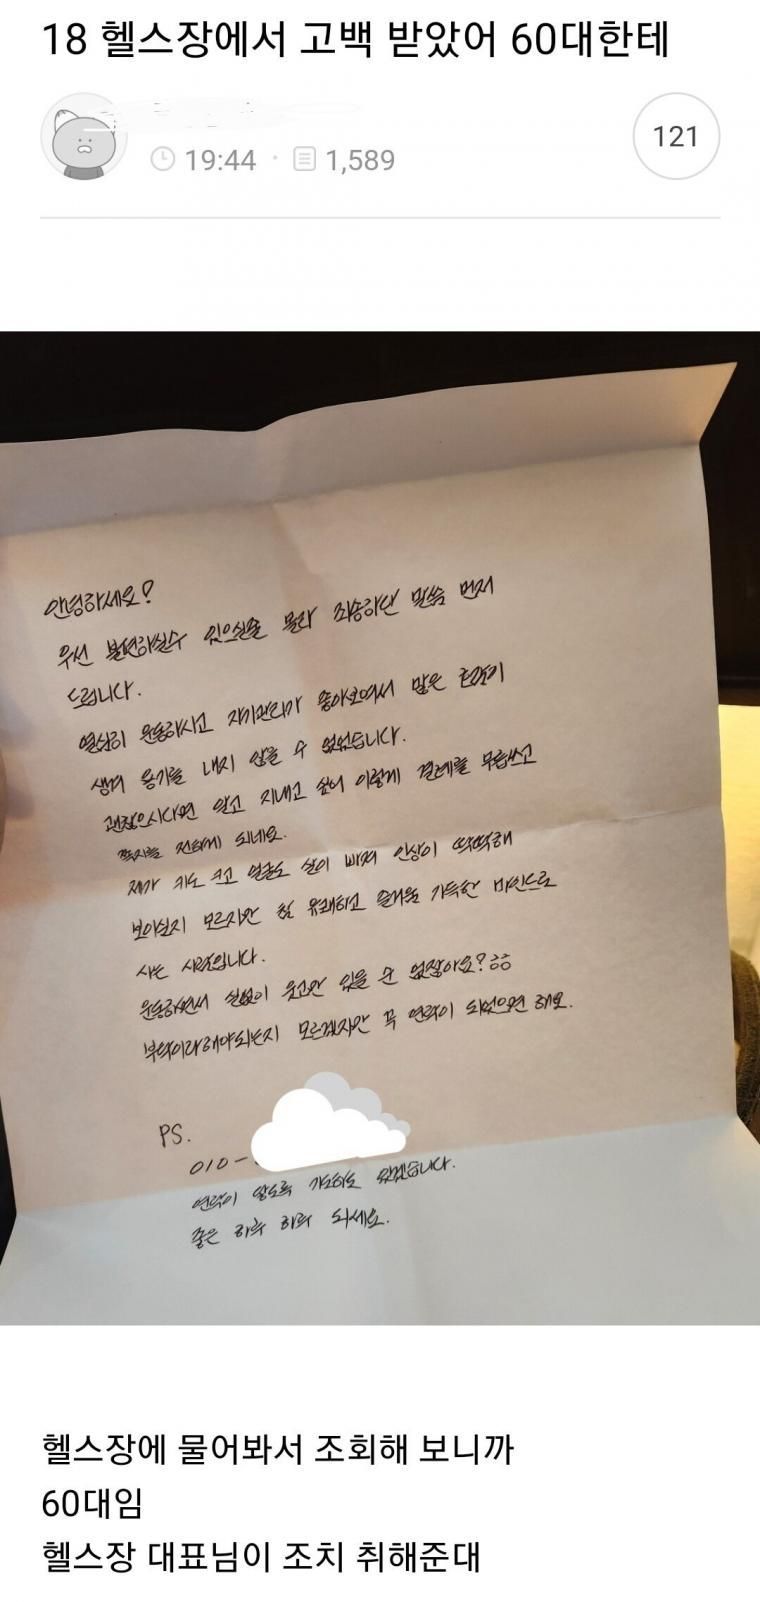 18 헬스장에서 고백 받았어 60대한테
19:44 · 1,589
121
안녕하세요?
우선 불편하실수 있으실줄 몰라 죄송하단 말씀 먼저
드립니다.
열심히 운동하시고 자기관리가 좋아보여서 많은 호감이
생겨 용기를 내지 않을 수 없었습니다.
괜찮으시다면 알고 지내고 싶어 이렇게 결례를 무릅쓰고
쪽지를 전하게 되네요.
제가 키도 크고 얼굴도 살이 빠져 인상이 딱딱해
보이실지 모르지만 참 유쾌하고 즐거움 가득한 마인드로
사는 사람입니다.
운동하면서 실없이 웃고만 있을 순 없잖아요?ㅎㅎ
부탁이라해야되는지 모르겠지만 꼭 연락이 되었으면 해요.
PS.
010-
연락이 않도록 기도하고 있겠습니다.
좋은 하루 하루 되세요.
헬스장에 물어봐서 조회해 보니까
60대임
헬스장 대표님이 조치 취해준대